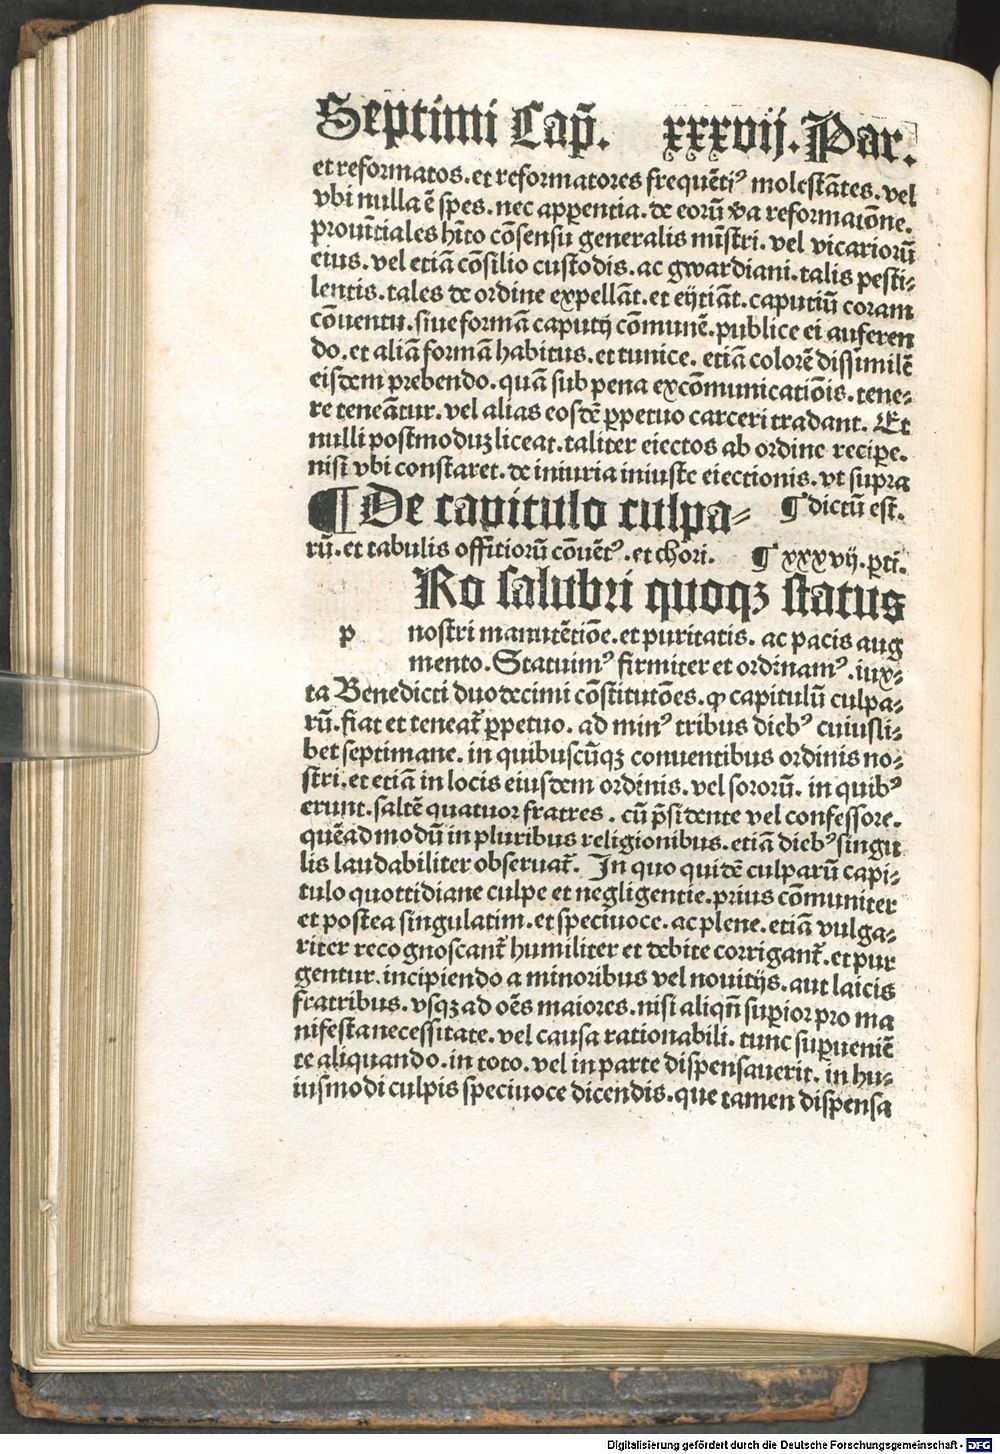 Septimi Cap̃. xxxvij. Par.
et reformatos. et reformatores frequẽtiꝰ molestãtes. vel
vbi nulla ẽ spes. nec apꝑentia. de eorũ ṽa reformaiõne.
prouĩtiales hito cõsensu generalis mĩstri. vel vicariorũ
eius. vel etiã cõsilio custodis. ac gwardiani. talis pesti⸗
lentis. tales de ordine expellãt. et eijtiãt. caputiũ coram
cõuentu. siue formã caputij cõmunẽ. publice ei auferen
do. et aliã formã habitus. et tunice. etiã colorẽ dissimilẽ
eisdem prebendo. quã sub pena excõmunicatiõis. tene⸗
re teneãtur. vel alias eosdẽ ꝑpetuo carceri tradant. Et
nulli postmoduꝫ liceat. taliter eiectos ab ordine reciꝑe.
nisi vbi constaret. de iniuria iniuste eiectionis. vt supra
¶ dictũ est.
¶ De capitulo culpa⸗
rũ. et tabulis offitiorũ cõuẽtꝰ. et chori. ¶ xxxvij. ꝑti.
p Ro salubri quoqꝫ status
nostri manutẽtiõe. et puritatis. ac pacis aug
mento. Statuimꝰ firmiter et ordinamꝰ. iux⸗
ta Benedicti duodecimi cõstitutões. ꝙ capitulũ culpa⸗
rũ. fiat et teneat̃ ꝑpetuo. ad minꝰ tribus diebꝰ cuiusli⸗
bet septimane. in quibuscũqꝫ conuentibus ordinis no⸗
stri. et etiã in locis eiusdem ordinis. vel sororũ. in quibꝰ
erunt. saltẽ quatuor fratres. cũ p̃sidente vel confessore.
quẽadmodũ in pluribus religionibus. etiã diebꝰ singu
lis laudabiliter obseruat̃. In quo quidẽ culparũ capi⸗
tulo quottidiane culpe et negligentie. prius cõmuniter
et postea singulatim. et speciuoce. ac plene. etiã vulga⸗
riter recognoscant̃ humiliter et debite corrigant̃. et pur
gentur. incipiendo a minoribus vel nouitijs. aut laicis
fratribus. vsqꝫ ad oẽs maiores. nisi aliqñ suꝑior pro ma
nifesta necessitate. vel causa rationabili. tunc suꝑueniẽ
te aliquando. in toto. vel in parte dispensauerit. in hu⸗
iusmodi culpis speciuoce dicendis. que tamen dispensa
Digitalisierung gefördert durch die Deutsche Forschungsgemeinschaft - DFG